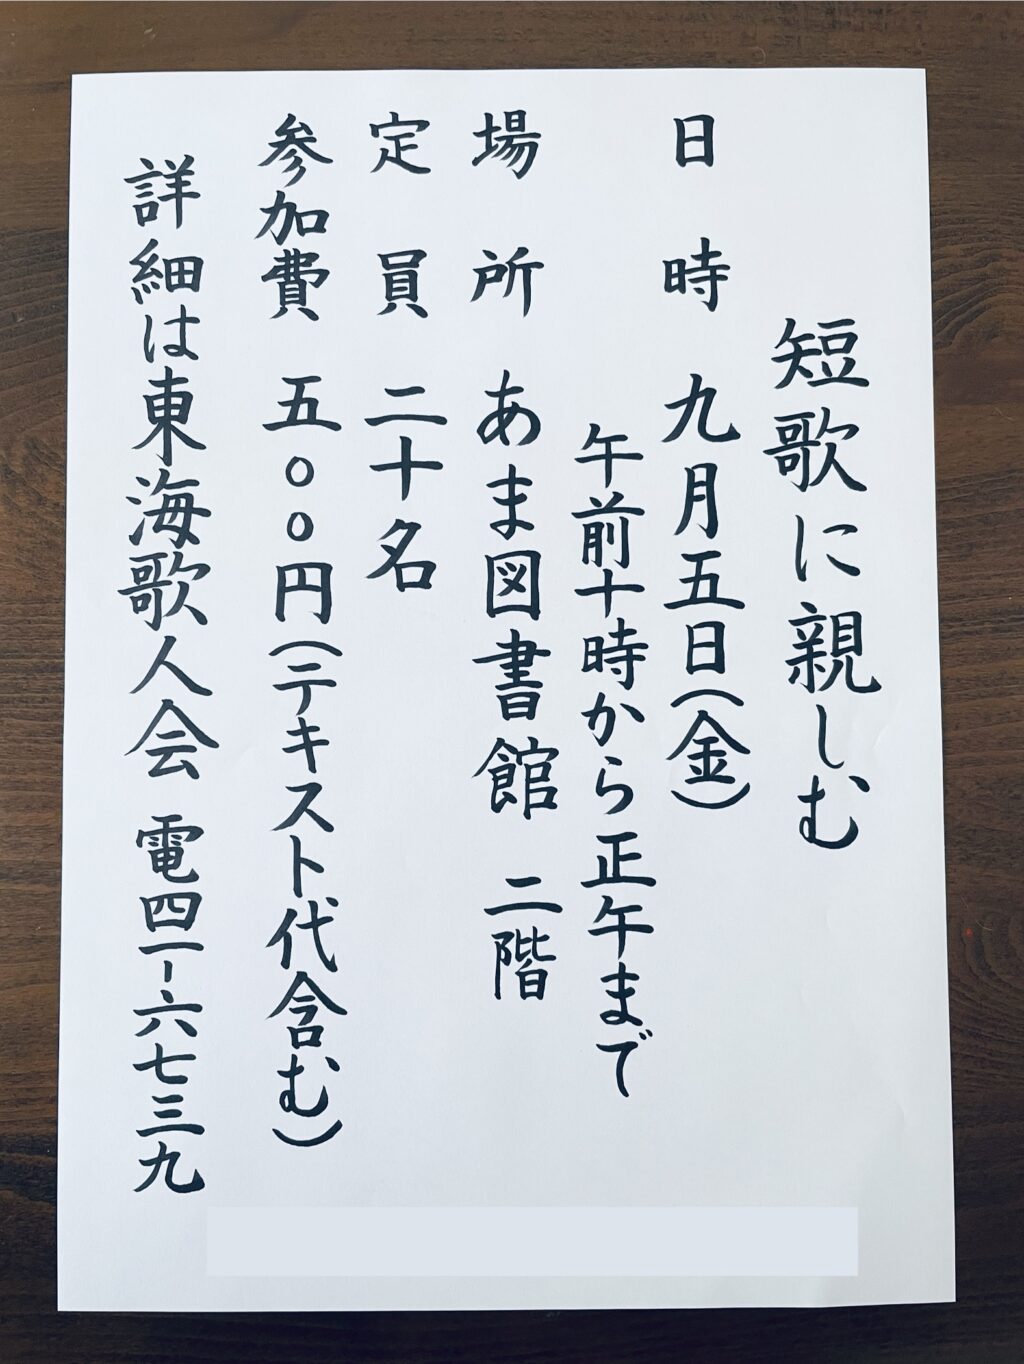 短歌に親しむ
日時 九月五日(金)
午前十時から正午まで
場所 あま図書館 二階
定員 二十名
参加費 五〇〇円(テキスト代含む)
詳細は東海歌人会 電四一-六七三九